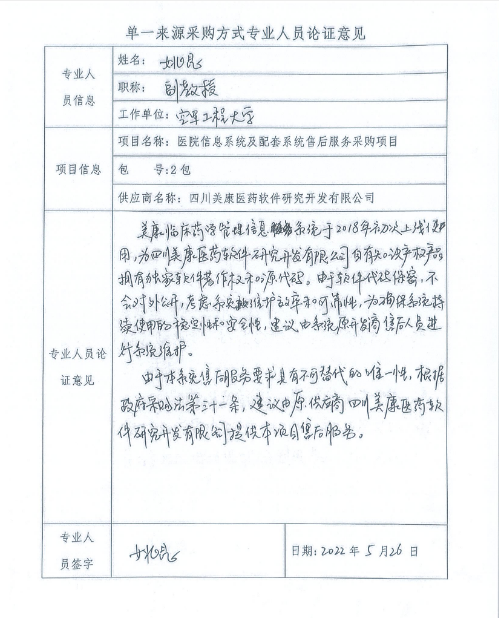 单一来源采购方式专业人员论证意见
专业人员信息
姓名：
职称：副教授
工作单位：空军工程大学
项目信息
项目名称：医院信息系统及配套系统售后服务采购项目
包 号：2包
供应商名称：四川美康医药软件研究开发有限公司
专业人员论证意见
美康临床药学管理信息系统于2018年初次上线使
用，为四川美康医药软件研究开发有限公司自有知识产权产品
拥有独家软件著作权和源代码。由于软件代码保密，不
会对外公开，考虑系统维护效率和可靠性，为确保系统持
续使用的稳定性和安全性，建议由系统原开发商售后人员进
行系统维护。
由于本系统售后服务要求具有不可替代的唯一性，根据
政府采购法第三十一条，建议由原供应商四川美康医药软
件研究开发有限公司提供本项目售后服务。
专业人员签字
日期：2022 年 5 月 26 日